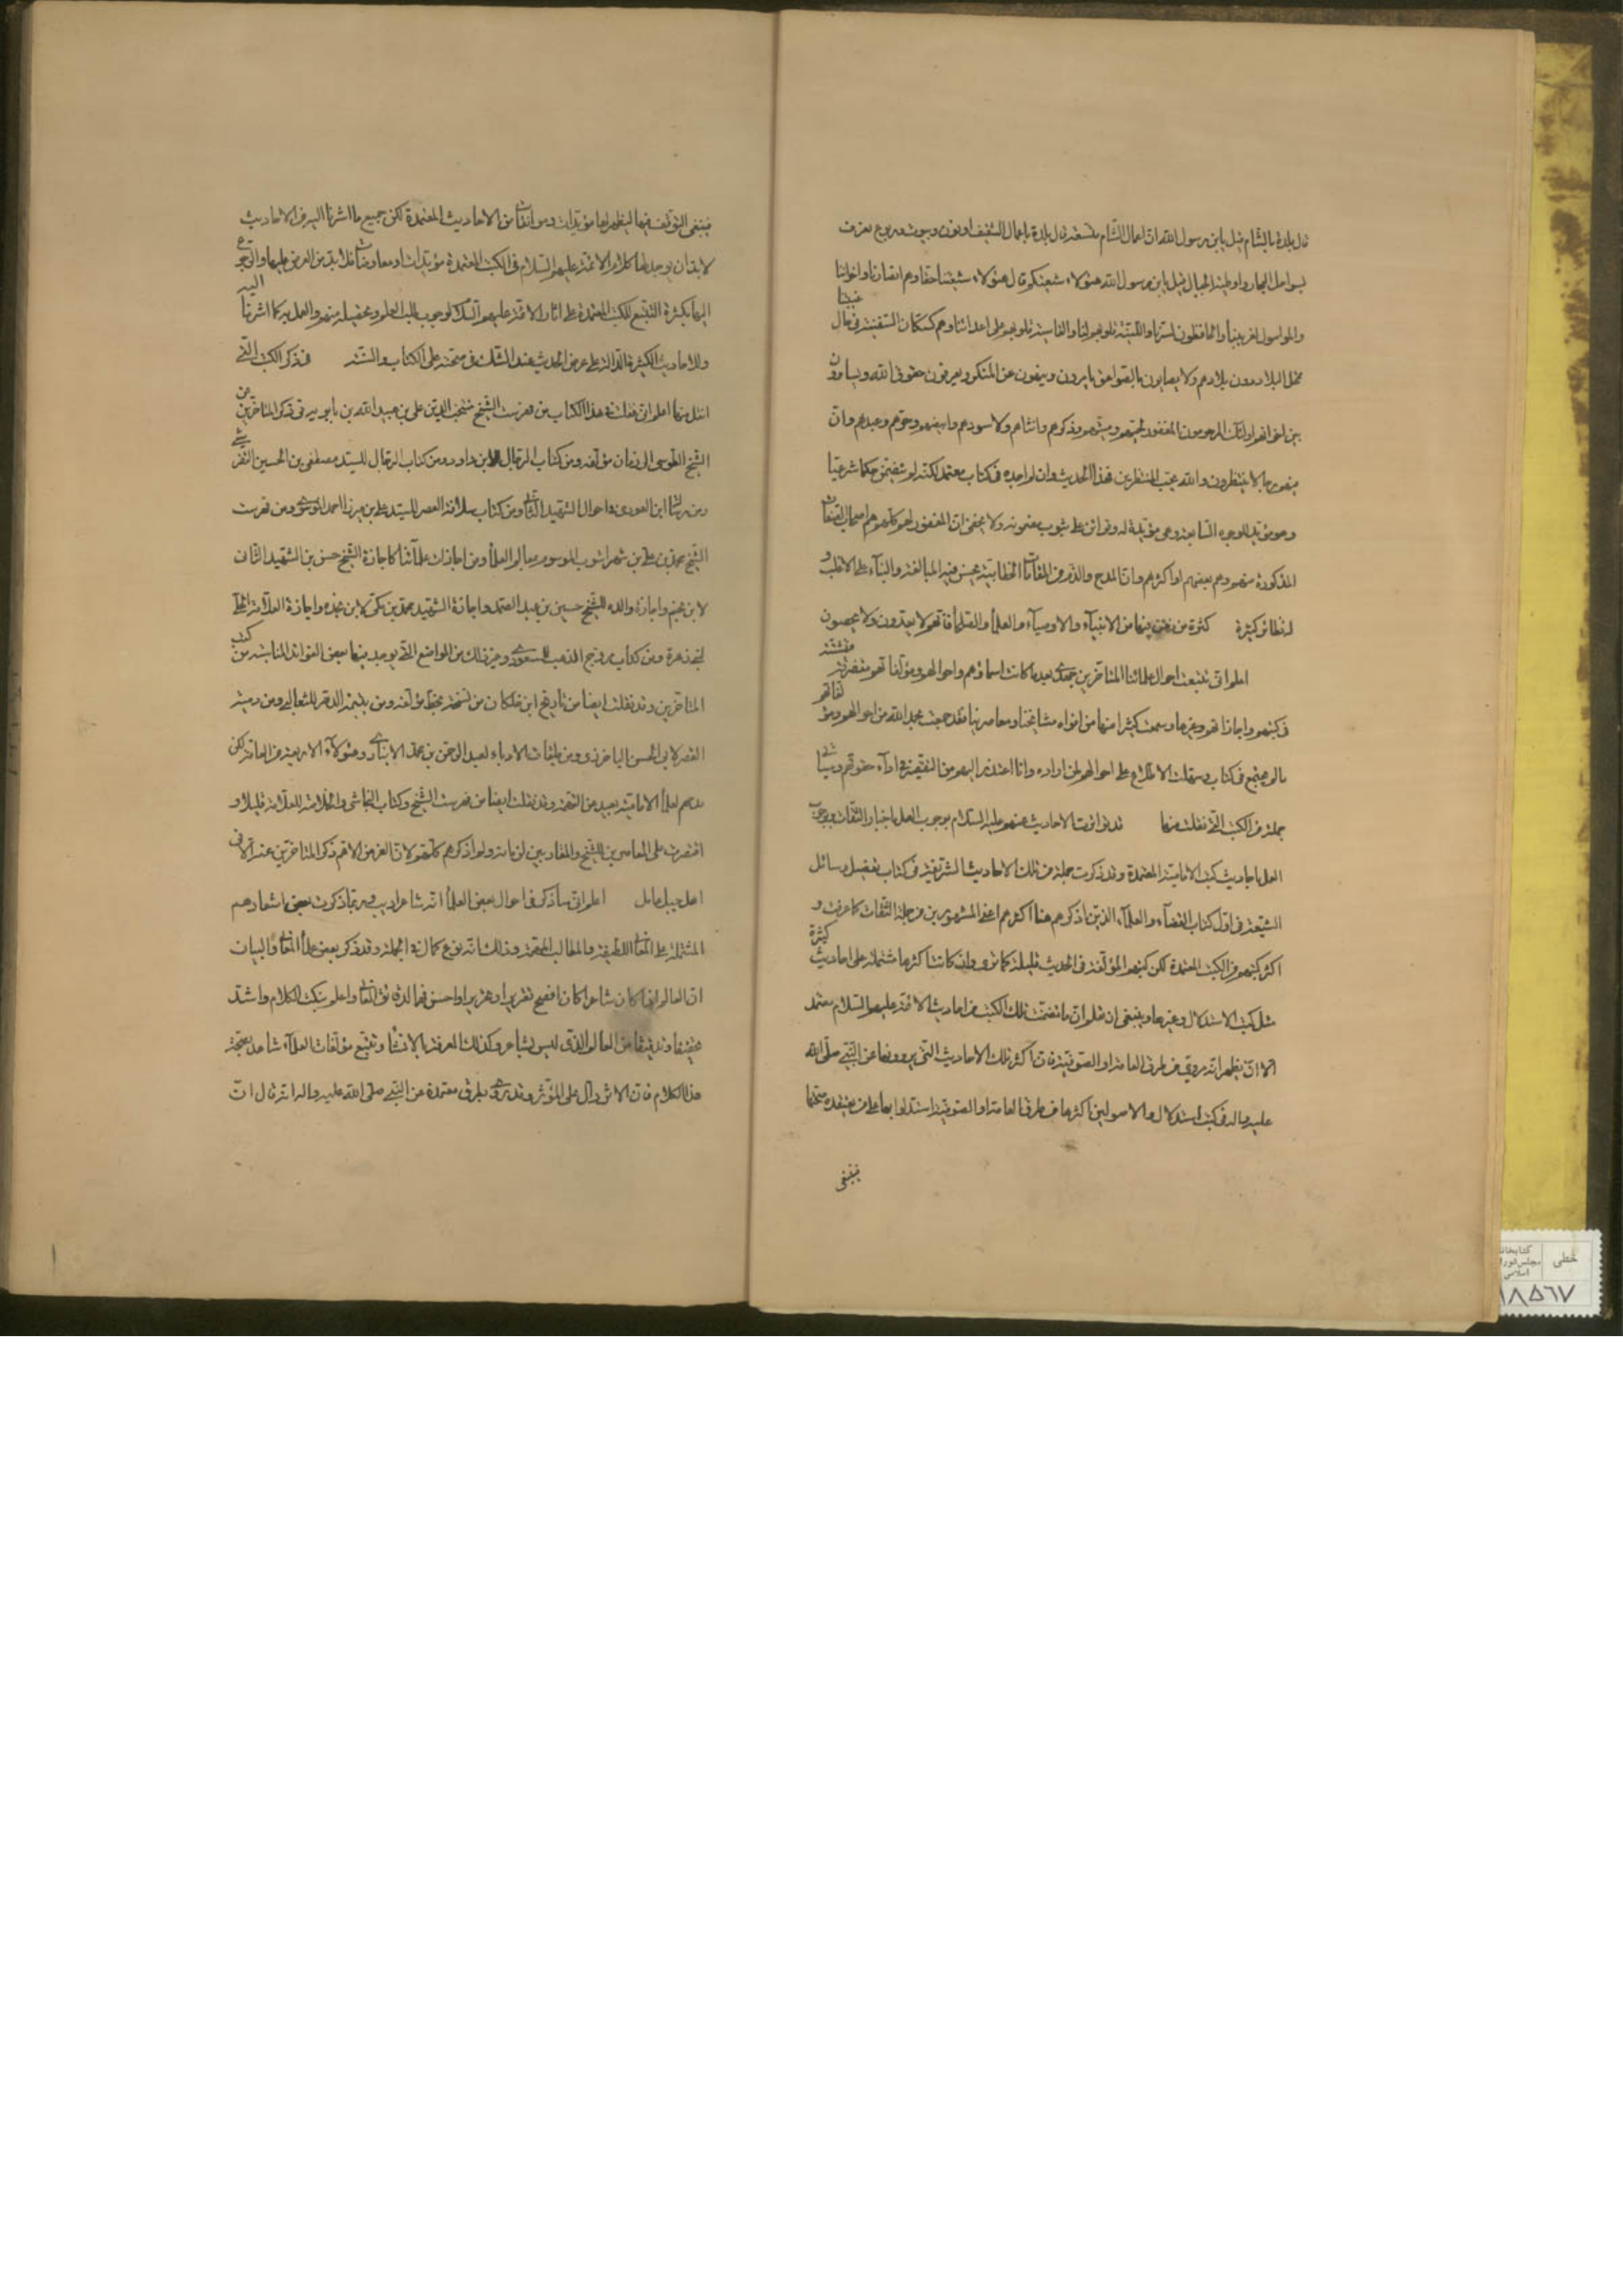 قال بلدة بالشام قيل يا بن رسول الله ان اعمال الشام متسعة قال بلدة باعمال الشقيف اونون وبيوت وربوع تعرف
بسواحل البحار واوطئة الجبال قيل يا بن رسول الله هؤلاء شيعتكم قال هؤلاء شيعتنا حقا وهم انصارنا واخواننا
والمواسون لغريبنا والحافظون لسرنا واللينة قلوبهم لنا والقاسية قلوبهم على اعدائنا وهم كسكان السفينة في حال غيبتنا
تمحل البلاد دون بلادهم ولا يصابون بالصواعق يامرون وينهون عن المنكر ويعرفون حقوق الله ويساوون
بين اخوانهم اولئك المرحومون المغفور لحيهم وميتهم وذكرهم وانثاهم ولاسودهم وابيضهم وحرهم وعبدهم وان
فيهم رجالا ينتظرون والله يحب المنتظرين فهذا الحديث وان لم اجده في كتاب معتمد لكنه لم يتضمن حكما شرعيا
وهو مؤيد للوجوه السابقة وهي مؤيدة له وقرائن على ثبوت مضمونه ولا يخفى ان المغفور لهم كلهم هم اصحاب الصفات
المذكورة منهم وهم بعضهم او اكثرهم وان المدح والذم في المقامات الخطابية يحسن فيه المبالغة والبناء على الاغلب و
له نظائر كثيرة كثرة من دفن فيها من الانبياء والاوصياء والعلماء والصلحاء فانهم لا يعدون ولا يحصون
اعلم اني تتبعت احوال علمائنا المتاخرين بجهدي بعد ما كانت اسماؤهم واحوالهم ومؤلفاتهم متفرقة مشتتة
في كتبهم واجازاتهم وغيرها وسمعت كثيرا منها من افواه مشايخنا ومعاصرينا فقد جمعت بحمد الله من احوالهم ومؤلفاتهم
ما لم يجتمع في كتاب وسهلت الاطلاع على احوالهم لمن اراده وانا اعتذر اليهم من التقصير في اداء حقوقهم وسياتي
جملة من الكتب التي نقلت منها قد تواترت الاحاديث عنهم عليهم السلام بوجوب العمل باخبار الثقات وبوجوب
العمل باحاديث كتب الامامية المعتمدة وقد ذكرت جملة من تلك الاحاديث الشريفة في كتاب تفصيل وسائل
الشيعة في اول كتاب القضاء والعلماء الذين اذكرهم هنا اكثرهم اعني المشهورين من جملة الثقات كما عرفت و
اكثر كتبهم من الكتب المعتمدة لكن كتبهم المؤلفة في الحديث قليلة كما ترى وان كانت اكثرها مشتملة على احاديث كثيرة
مثل كتب الاستدلال وغيرها وينبغي ان تعلم ان ما تضمنت تلك الكتب من احاديث الائمة عليهم السلام معتمد
الا ان يظهر انه مروي من طرق العامة او الصوفية فان اكثر تلك الاحاديث التي يروونها عن النبي صلى الله
عليه واله في كتب استدلال والاصولين اكثرها من طرق العامة او الصوفية استدلوا بها على من يعتقد صحتها
فينبغي
فينبغي التوقف فيها ليظهر لها مؤيدات وموافقات من الاحاديث المعتمدة لكن جميع ما اشرنا اليه من الاحاديث
لا بد ان يوجد لها كلام الائمة عليهم السلام في الكتب المعتمدة مؤيدات او معارضات فلا بد من العرض عليها والرجوع
اليها بكثرة التتبع للكتب المعتمدة على اثار الائمة عليهم السلام لوجوب طلب العلم وتحصيله منهم والعمل به كما اشرنا اليه
وللاحاديث الكثيرة الدالة على عرض الحديث عند الشك في صحته على الكتاب والسنة في ذكر الكتب التي
انقل منها اعلم اني نقلت في هذا الكتاب من فهرست الشيخ منتجب الدين علي بن عبيد الله بن بابويه في ذكر المتاخرين عن
الشيخ الطوسي الى زمان مؤلفه ومن كتاب الرجال لابن داود ومن كتاب الرجال للسيد مصطفى بن الحسين التفرشي
ومن رسالة ابن العودي في احوال الشهيد الثاني ومن كتاب سلافة العصر للسيد علي بن ميرزا احمد الموسوي ومن فهرست
الشيخ محمد بن علي بن شهراشوب الموسوم بمعالم العلماء ومن اجازات علمائنا كاجازة الشيخ حسن بن الشهيد الثاني
لابن نجم واجازة والده للشيخ حسين بن عبد الصمد واجازة الشهيد محمد بن مكي لابن نجدة واجازة العلامة الحلي
لبني زهرة ومن كتاب مروج الذهب للمسعودي وغير ذلك من المواضع التي يوجد فيها بعض الفوائد المناسبة من كتب
المتاخرين وقد نقلت ايضا من تاريخ ابن خلكان من نسخة بخط مؤلفه ومن يتيمة الدهر للثعالبي ومن دمية
القصر لابي الحسن الباخرزي ومن طبقات الادباء لعبد الرحمن بن محمد الانباري وهؤلاء الاربعة من العامة لكن
مدحهم لعلماء الامامية بعيد من التهمة وقد نقلت ايضا من فهرست الشيخ وكتاب النجاشي والخلاصة للعلامة قليلا و
اقتصرت على المعاصرين للشيخ والمقاربين لزمانه ولم اذكرهم كلهم لان الغرض الاهم ذكر المتاخرين عنه الا في
اهل جبل عامل اعلم اني ساذكر في احوال بعض العلماء انه شاعر اديب وربما ذكرت بعض اشعارهم
المشتملة على المعاني اللطيفة والمطالب المهمة وذلك انه نوع كمال في الجملة وقد ذكر بعض علماء المعاني والبيان
ان العالم اذا كان شاعرا كان افصح تقريرا وتحريرا واحسن فهما لدقائق المعاني واعلم بنكت الكلام واشد
تحقيقا وتدقيقا من العالم الذي ليس بشاعر وكذلك المعرفة بالانشاء وتتبع مؤلفات العلماء شاهد بصحة
هذا الكلام فان الاثر دال على المؤثر وقد روي بطرق معتمدة عن النبي صلى الله عليه واله انه قال ان
خطی
کتابخانه
مجلس شورا
اسلامی
۱۸۵۶۷